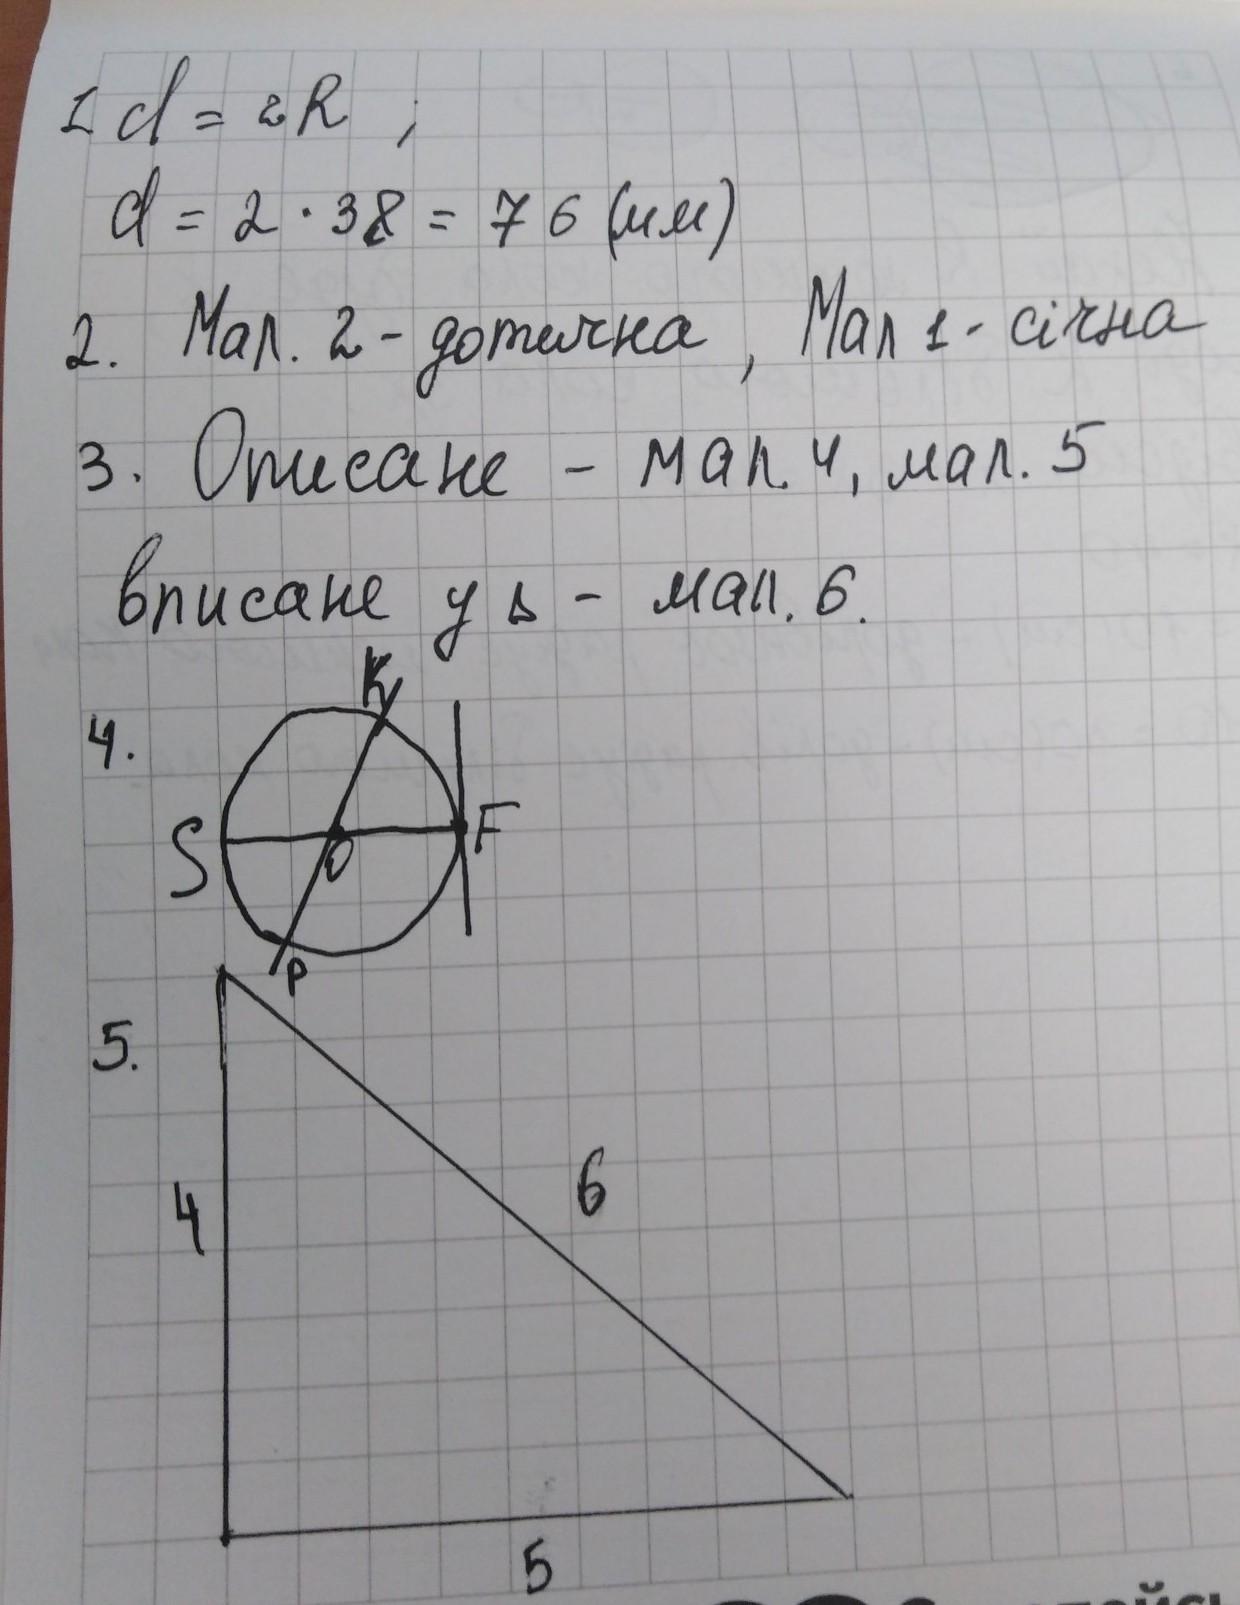 1 d = 2R ;
d = 2 · 38 = 76 (мм)
2. Мал. 2 - дотична, Мал 1 - січна
3. Описане - мал. 4, мал. 5
вписане у Δ - мал. 6.
4.
K
S
O
F
P
5.
4
6
5